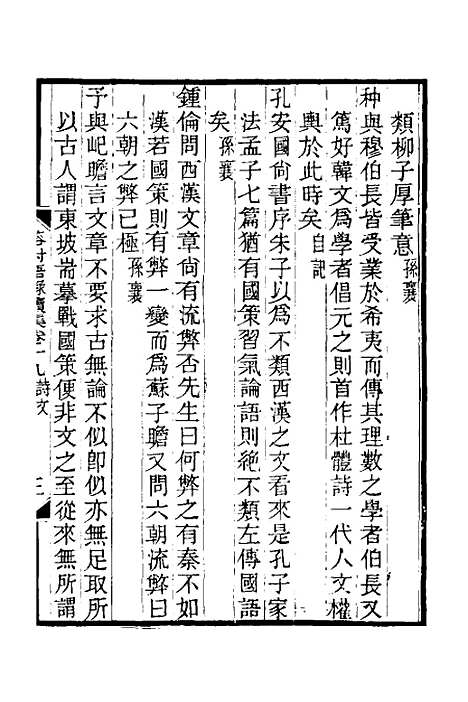 類柳子厚筆意孫襄
种與穆伯長皆受業於希夷而傳其理數之學者伯長又
篤好韓文為學者倡元之則首作杜體詩一代人文權
輿於此時矣自記
孔安國尚書序朱子以為不類西漢之文看來是孔子家
法孟子七篇猶有國策習氣論語則絶不類左傳國語
矣孫襄
鍾倫問西漢文章尚有流弊否先生曰何弊之有秦不如
漢若國策則有弊一變而為蘇子瞻又問六朝流弊曰
六朝之弊已極孫襄
子與屺瞻言文章不要求古無論不似卽似亦無足取所
以古人謂東坡耑摹戰國策便非文之至從來無所謂
榕村語錄續集卷十九詩文
三